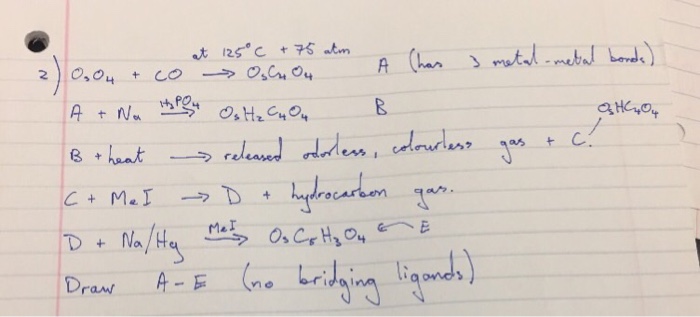 at 125°C + 75 atm
2) OsO4 + CO → OsC4O4 A (has 3 metal-metal bonds)
A + Na H3PO4 → OsH2C4O4 B
OsHC4O4
B + heat → released odorless, colourless gas + C!
C + MeI → D + hydrocarbon gas.
D + Na/Hg MeI → OsC5H3O4 ← E
Draw A-E (no bridging ligands)